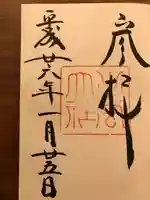 参拝
平成廿六年一月廿五日